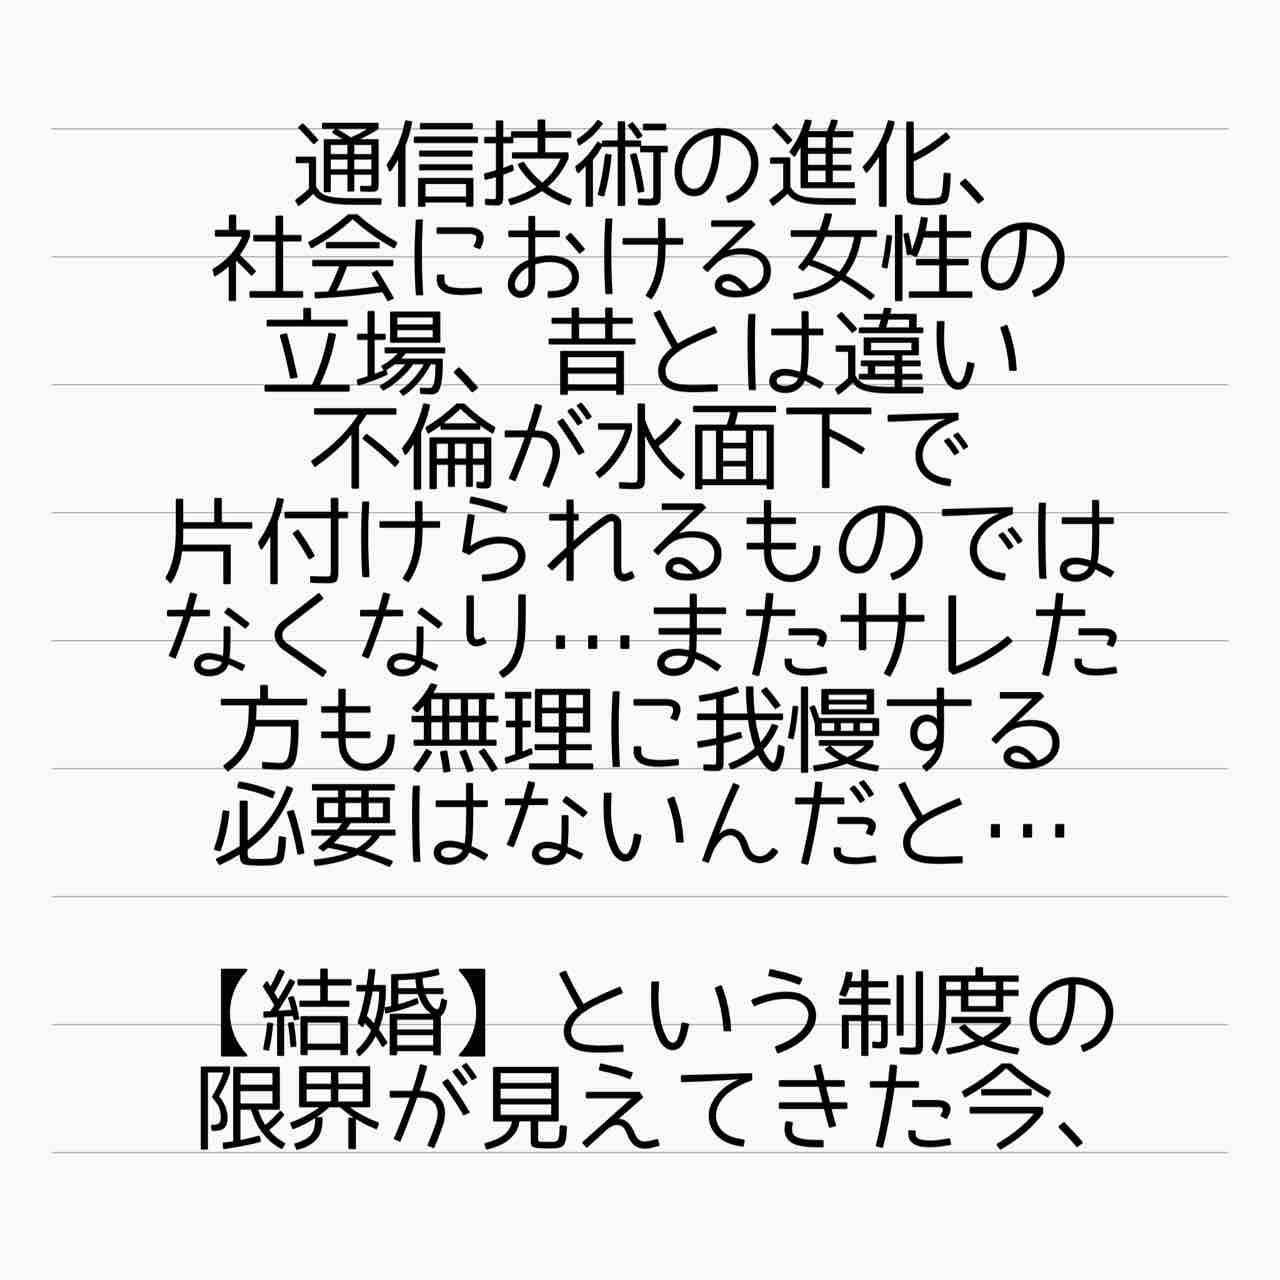 通信技術の進化、
社会における女性の
立場、昔とは違い
不倫が水面下で
片付けられるものでは
なくなり…またサレた
方も無理に我慢する
必要はないんだと…
【結婚】という制度の
限界が見えてきた今、